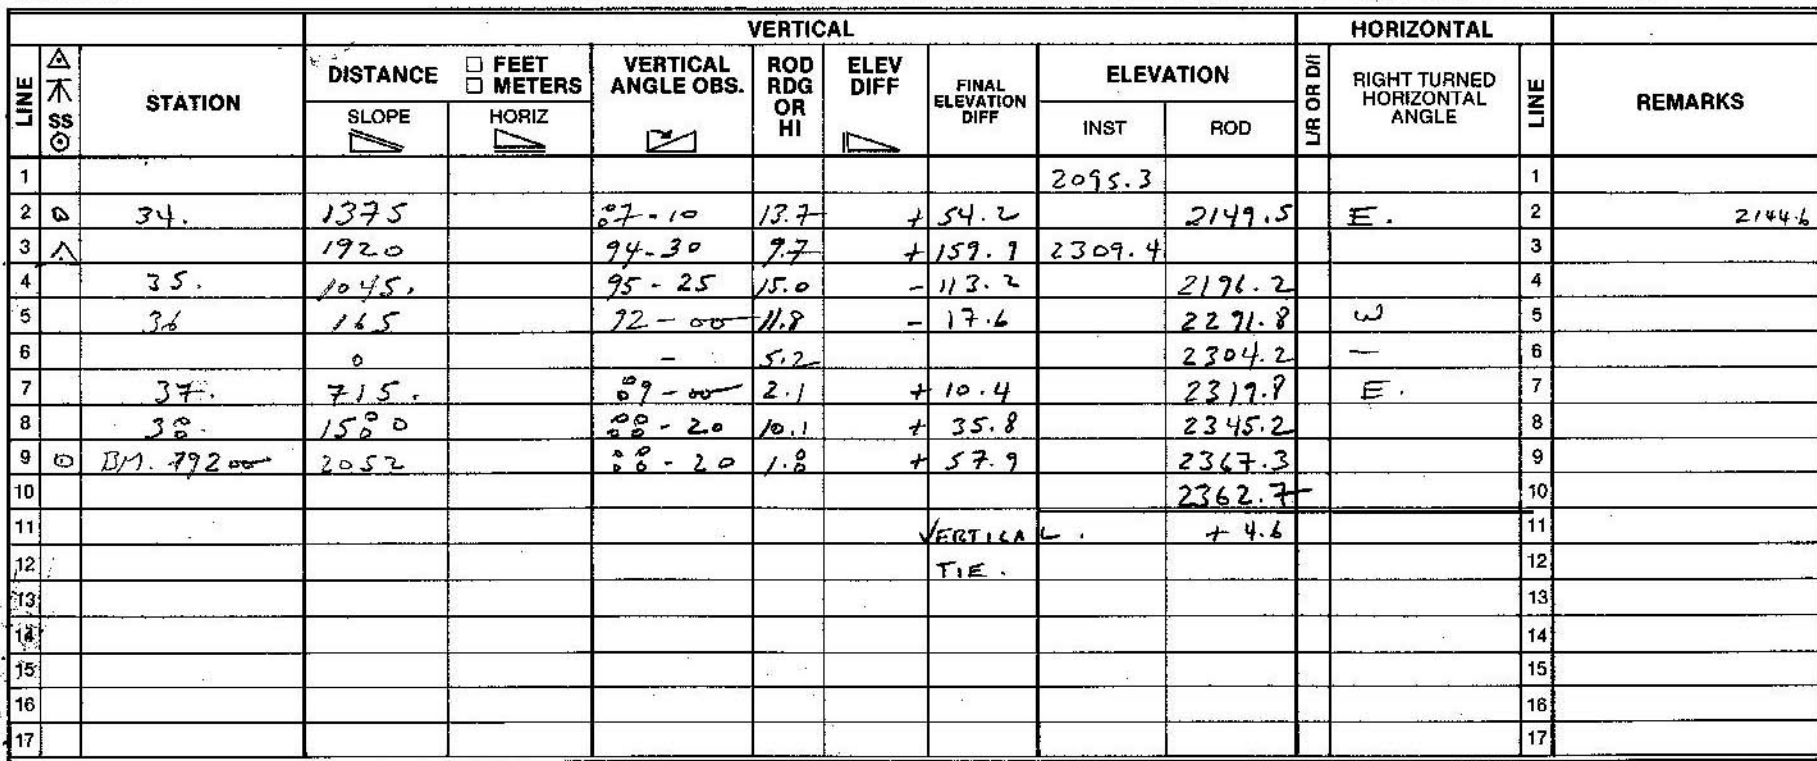 VERTICAL HORIZONTAL
LINE SS STATION DISTANCE □ FEET □ METERS SLOPE HORIZ VERTICAL ANGLE OBS. ROD RDG OR HI ELEV DIFF FINAL ELEVATION DIFF ELEVATION INST ROD L/R OR D/I RIGHT TURNED HORIZONTAL ANGLE LINE REMARKS
1 2095.3 1
2 34. 1375 87-10 13.7 + 54.2 2149.5 E. 2 2144.6
3 1920 94-30 9.7 + 159.9 2309.4 3
4 35. 1045. 95-25 15.0 - 113.2 2196.2 4
5 36 165 92-00 11.8 - 17.6 2291.8 W 5
6 0 - 5.2 2304.2 — 6
7 37. 715. 89-00 2.1 + 10.4 2319.8 E. 7
8 38. 1580 88-20 10.1 + 35.8 2345.2 8
9 BM. 79200 2052 88-20 1.8 + 57.9 2367.3 9
10 2362.7 10
11 VERTICAL. + 4.6 11
12 TIE. 12
13 13
14 14
15 15
16 16
17 17